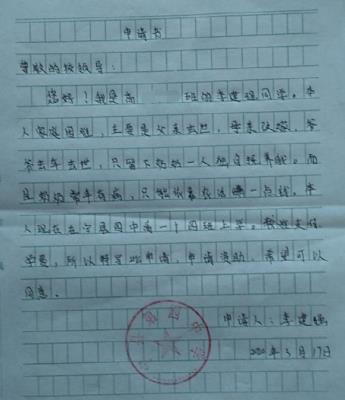 申请书
尊敬的校领导：
您好！我是高 班的李建强同学。本
人家庭困难，主要是父亲去世，母亲改嫁，爷
爷去年去世，只留下奶奶一人独自抚养我。而
且奶奶常年有病，只能依靠在法 一点钱。本
人现在在宁县四中高一十四班上学。家庭支付
学费，所以特写此申请，申请资助，希望可以
同意。
申请人：李建强
年3月17日